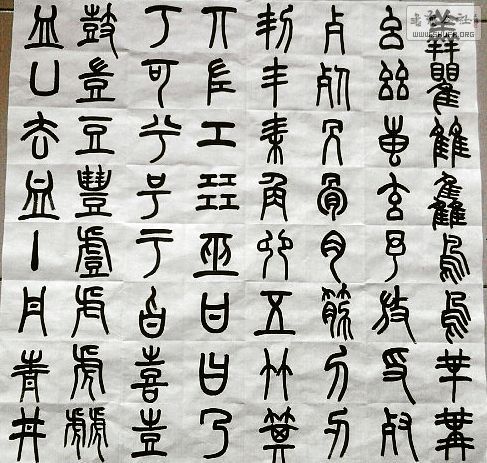 羴瞿雔雥鳥烏𠦒冓
幺𢆶叀玄予放𠬪𣦼
歺死冎骨肉筋刀刃
㓞丯耒角五竹箕
丌左工㠭巫甘曰乃
丂可兮号亏旨喜壴
鼓豈豆豐䖒虍虎虤
皿凵去血丶丹青井
WWW.SHUFA.ORG